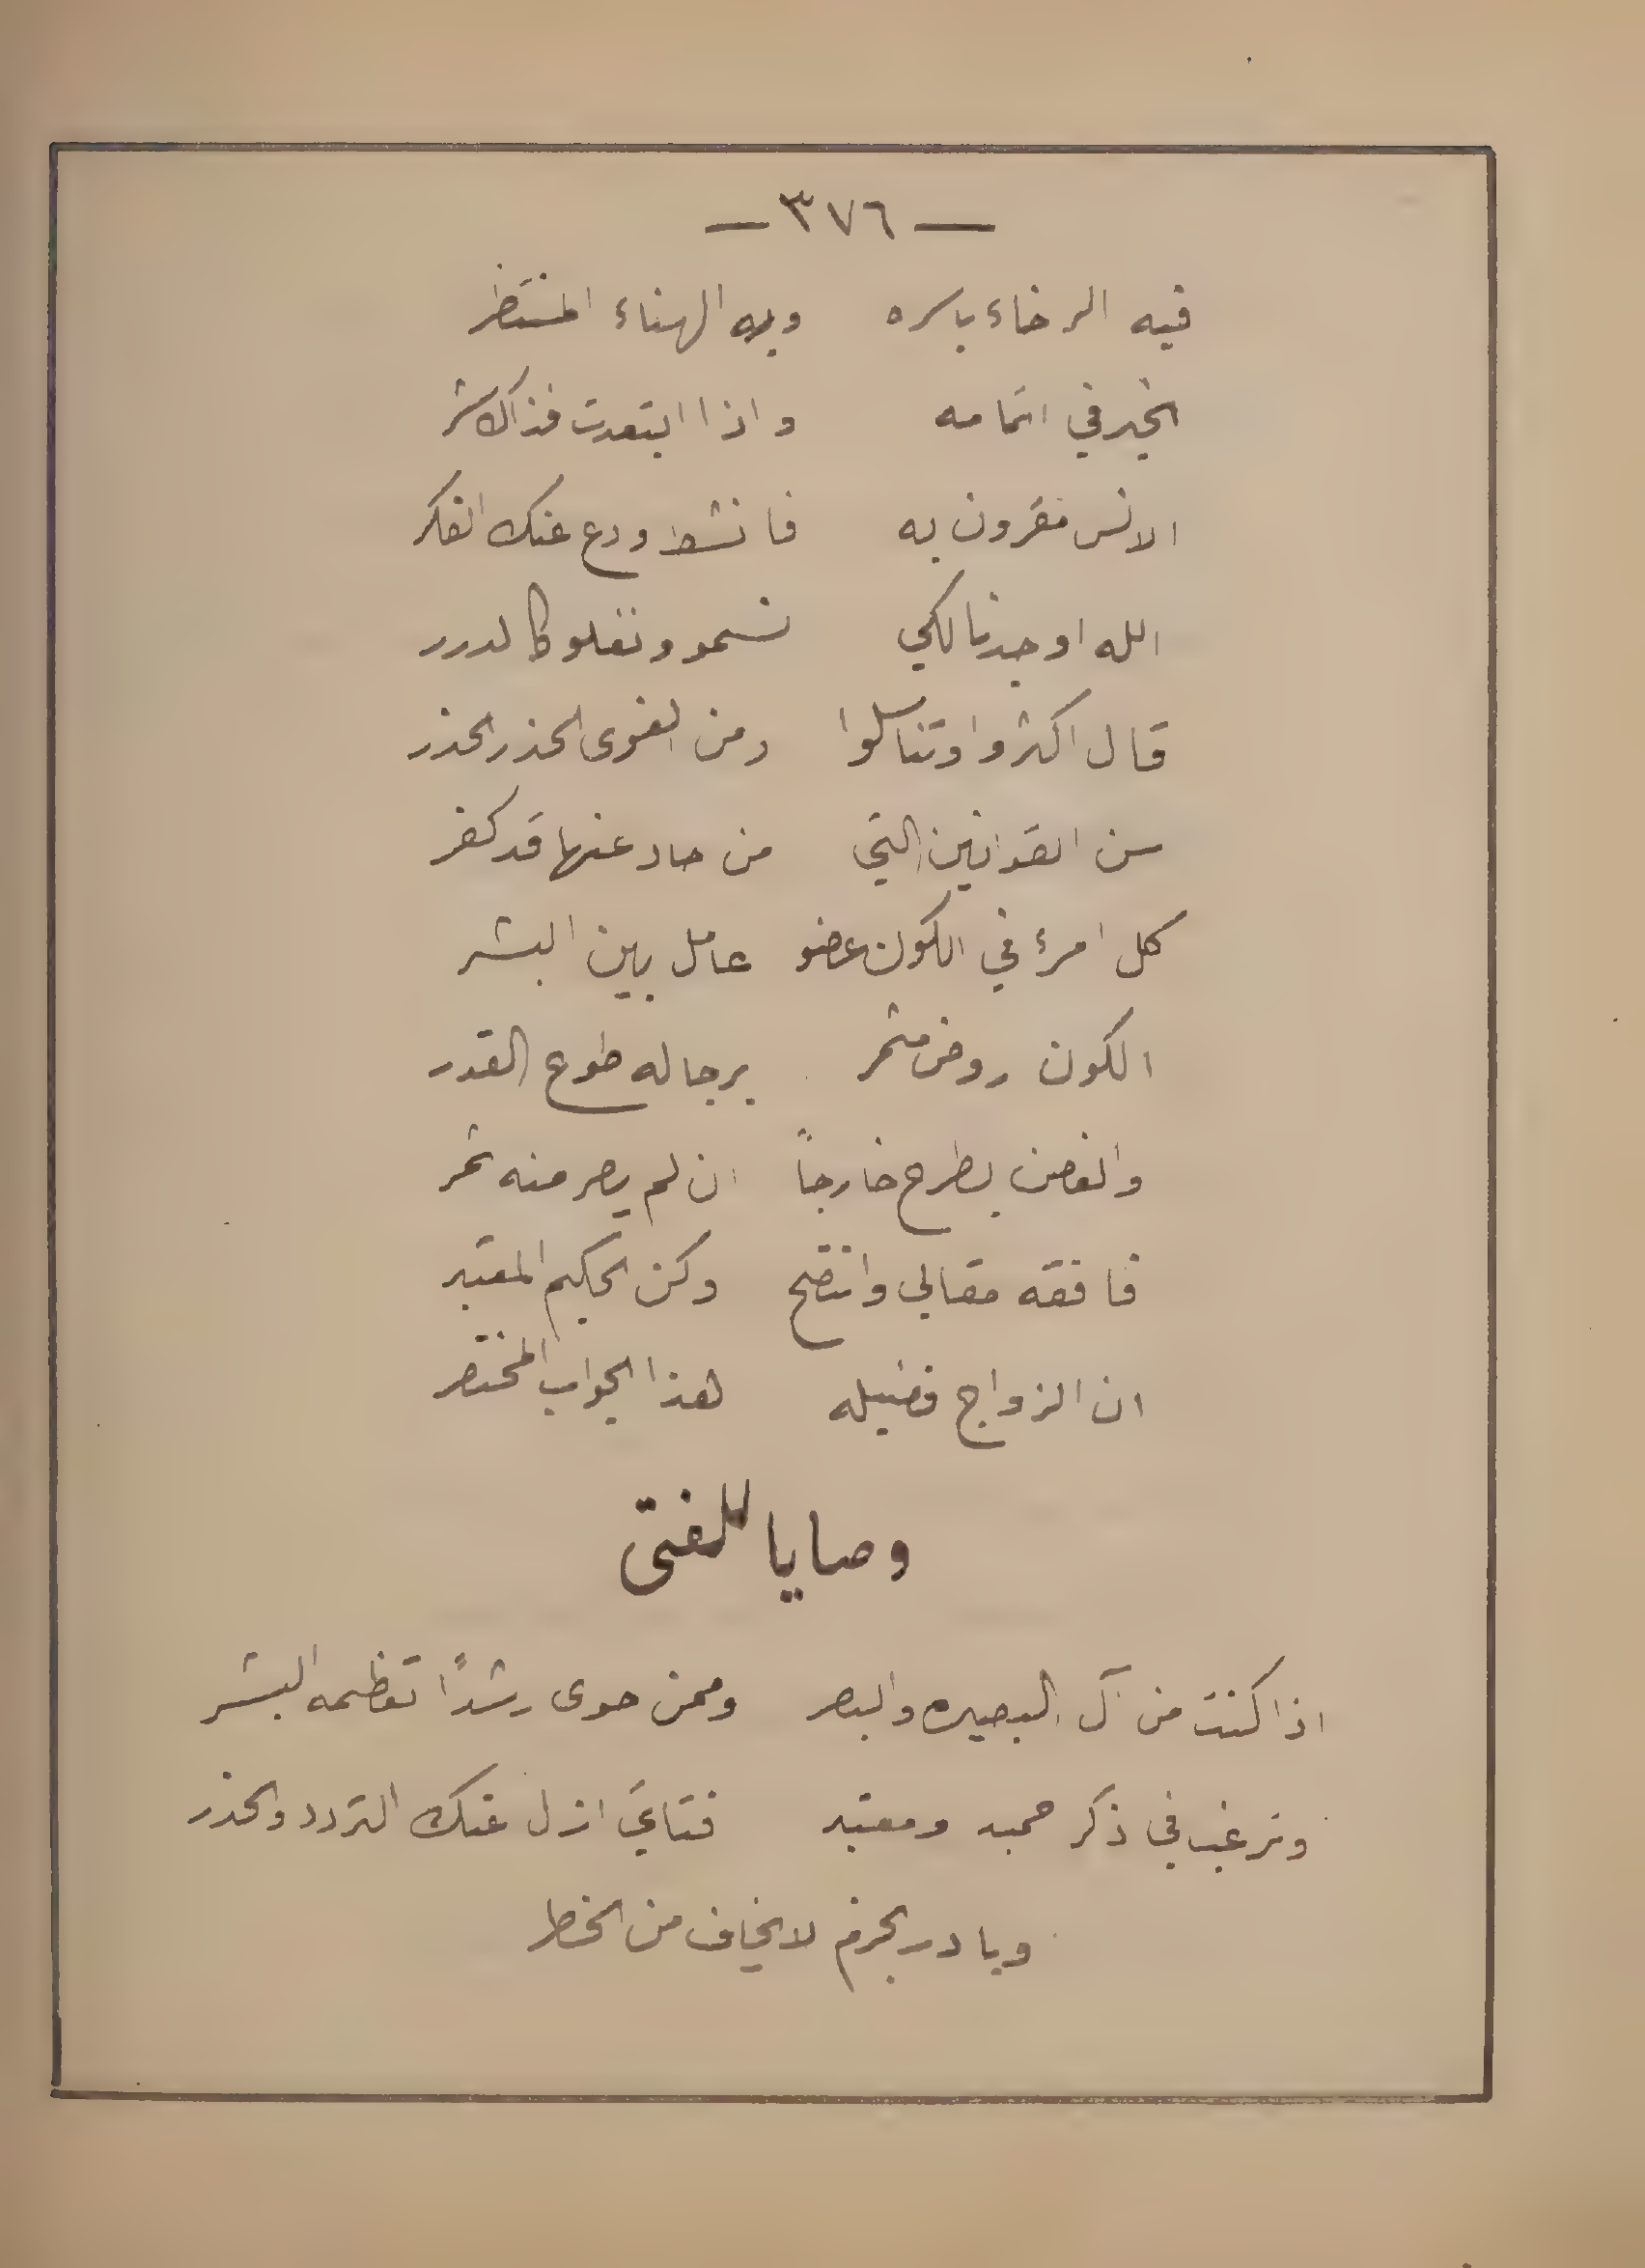 — ٣٧٦ —
فيه الرخاء باسره وبه الهناء المنتظر
الخير في اتمامه واذا ابتعدت فذاك شر
الانس مقرون به فانشط ودع عنك الفكر
الله اوجدنا لكي نسمو ونغلو كالدرر
قال اكثروا وتناسلوا ومن الغوى الحذر الحذر
سن القوانين التي من حاد عنها قد كفر
كل امرء في الكون عضو عامل بين البشر
الكون روض مثمر برجاله طوع القدر
والغصن يطرح خارجاً ان لم يصر منه ثمر
فافقه مقالي وانتصح وكن الحكيم المعتبر
ان الزواج فضيله هذا الجواب المختصر
وصايا للفتى
اذا كنت من آل البصيره والبصر وممن حوى رشداً تعظمه البشر
وترغب في ذكر حميد ومعتبر فتايَ ازل عنك التردد والحذر
وبادر بحزم لا يخاف من الخطر